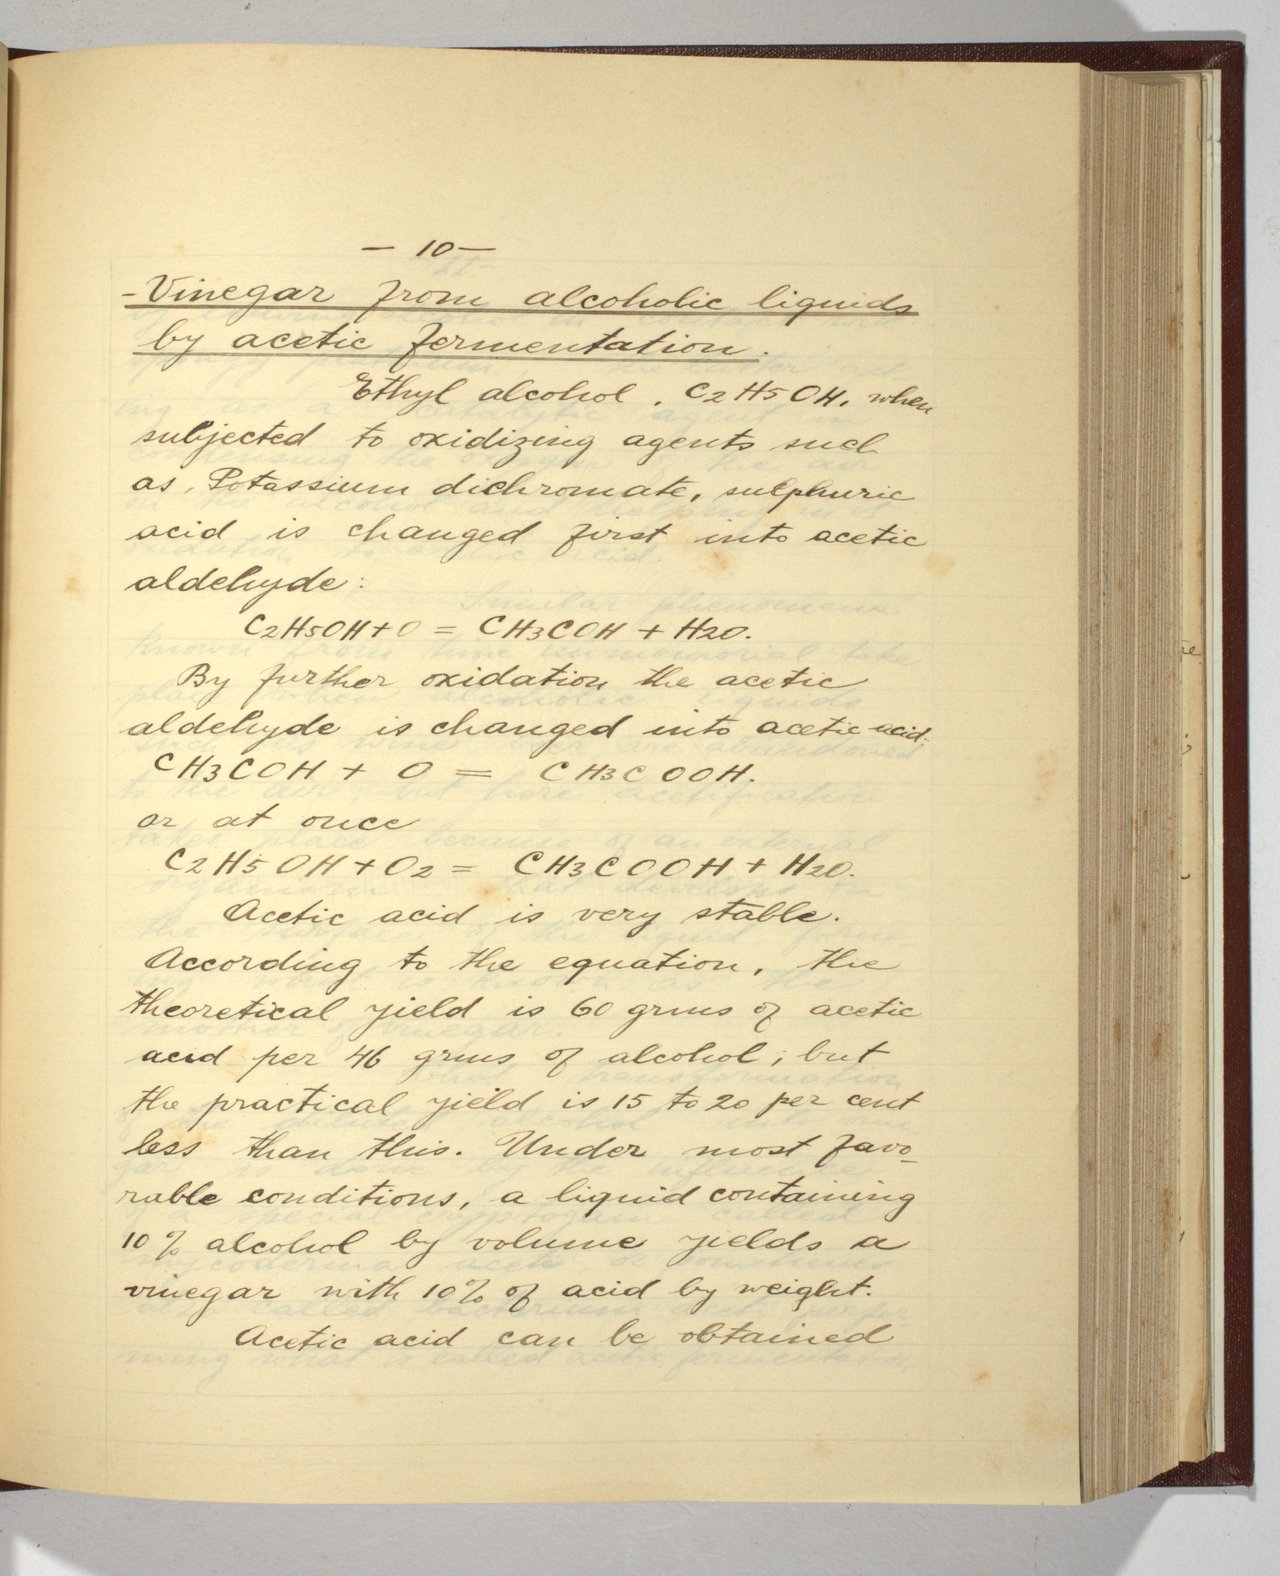 — 10 —
- Vinegar from alcoholic liquids
by acetic fermentation.
Ethyl alcohol, C2H5OH, when
subjected to oxidizing agents such
as, Potassium dichromate, sulphuric
acid is changed first into acetic
aldehyde:
C2H5OH + O = CH3COH + H2O.
By further oxidation the acetic
aldehyde is changed into acetic acid:
CH3COH + O = CH3COOH.
or at once
C2H5OH + O2 = CH3COOH + H2O.
Acetic acid is very stable.
According to the equation, the
theoretical yield is 60 grms of acetic
acid per 46 grms of alcohol; but
the practical yield is 15 to 20 per cent
less than this. Under most favo-
rable conditions, a liquid containing
10% alcohol by volume yields a
vinegar with 10% of acid by weight.
Acetic acid can be obtained